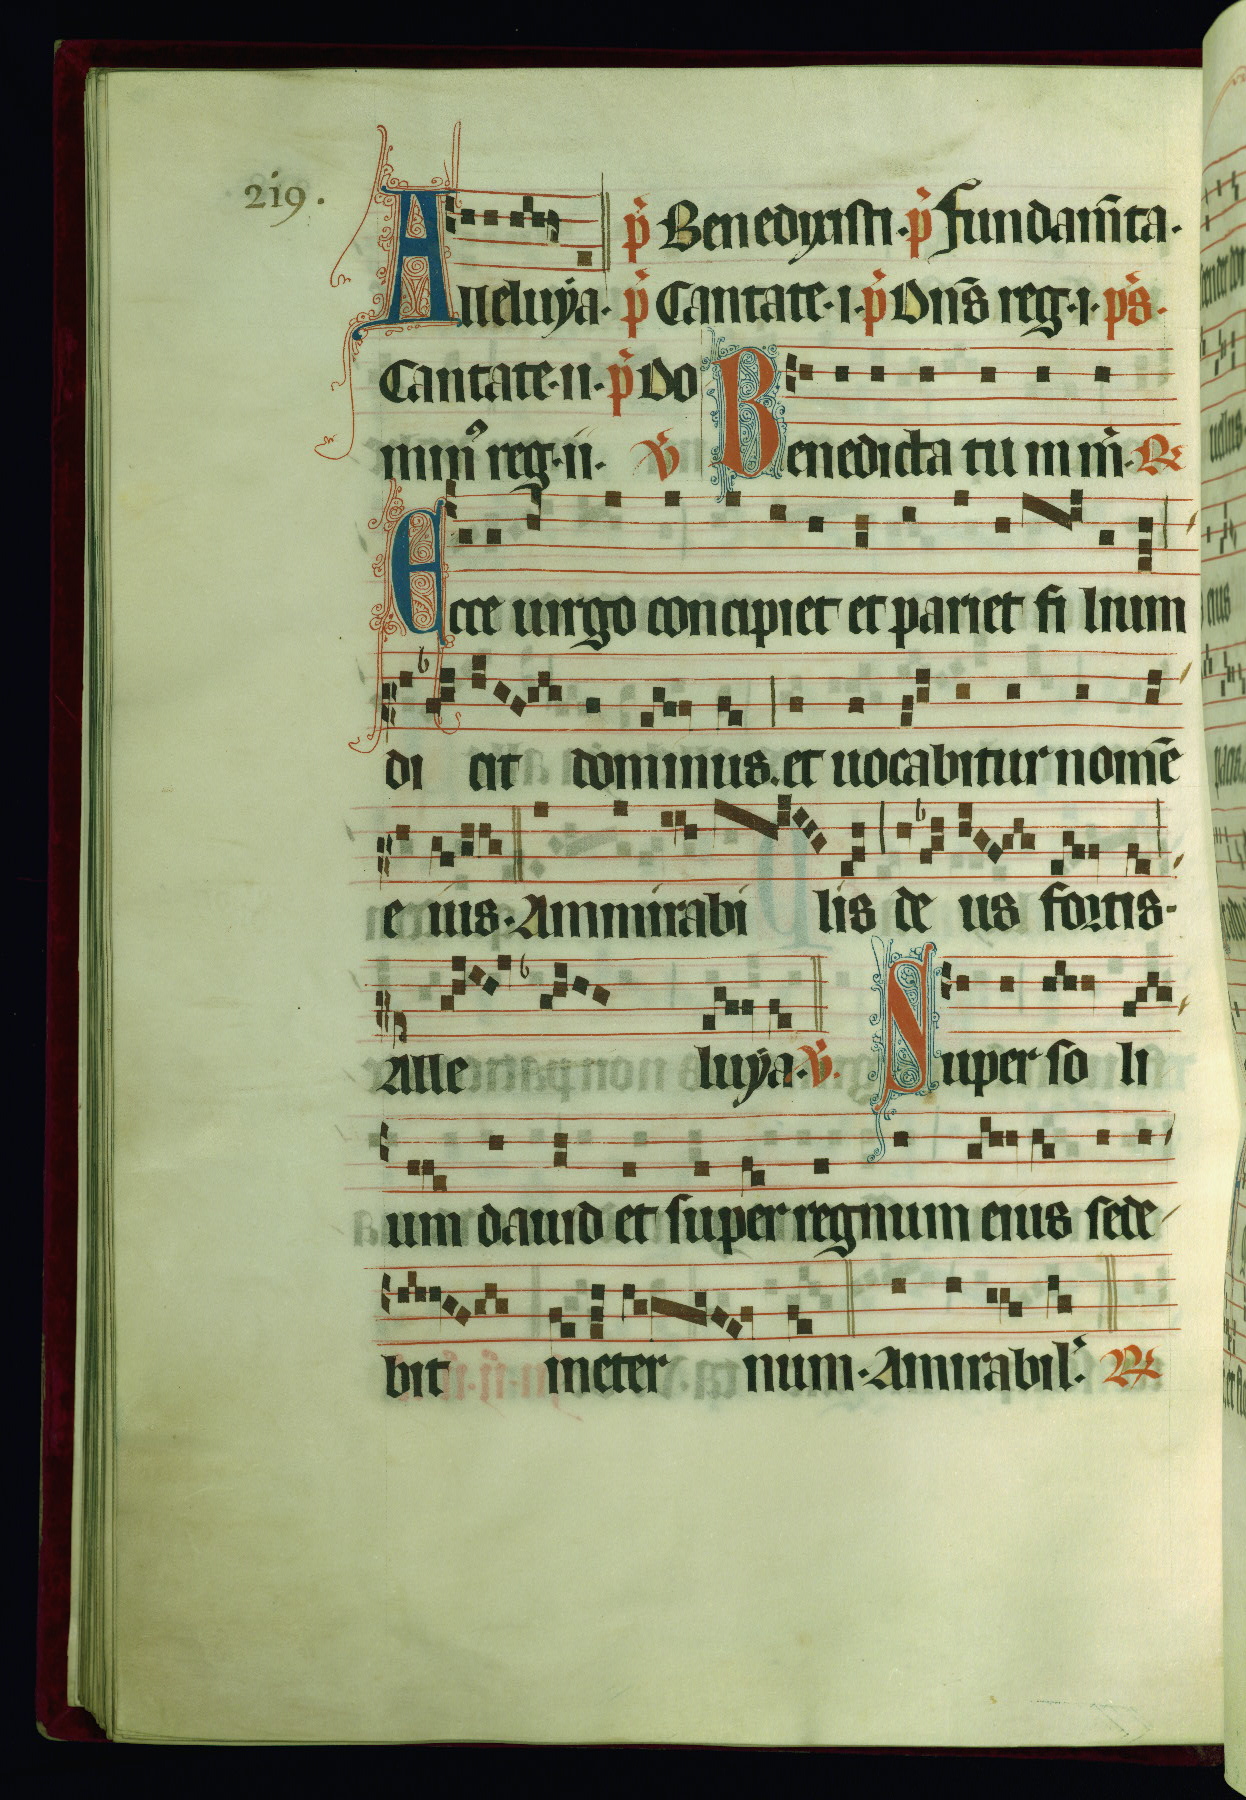 219.
p̃ Benedyxisti. p̃ Fundam̃ta.
Alleluÿa. p̃ Cantate. i. p̃ Dñs reg. i. p̃s.
Cantate. ii. p̃ Do
mini reg. ii. V̄ Benedicta tu in m̃. R
Ecce uirgo concipiet et pariet fi lium
di cit dominus. et uocabitur nomẽ
e ius. Ammirabi lis de us fortis.
Alle luÿa. V̄. Super so li
um dauid et super regnum eius sede
bit ineter num. Amirabil. R